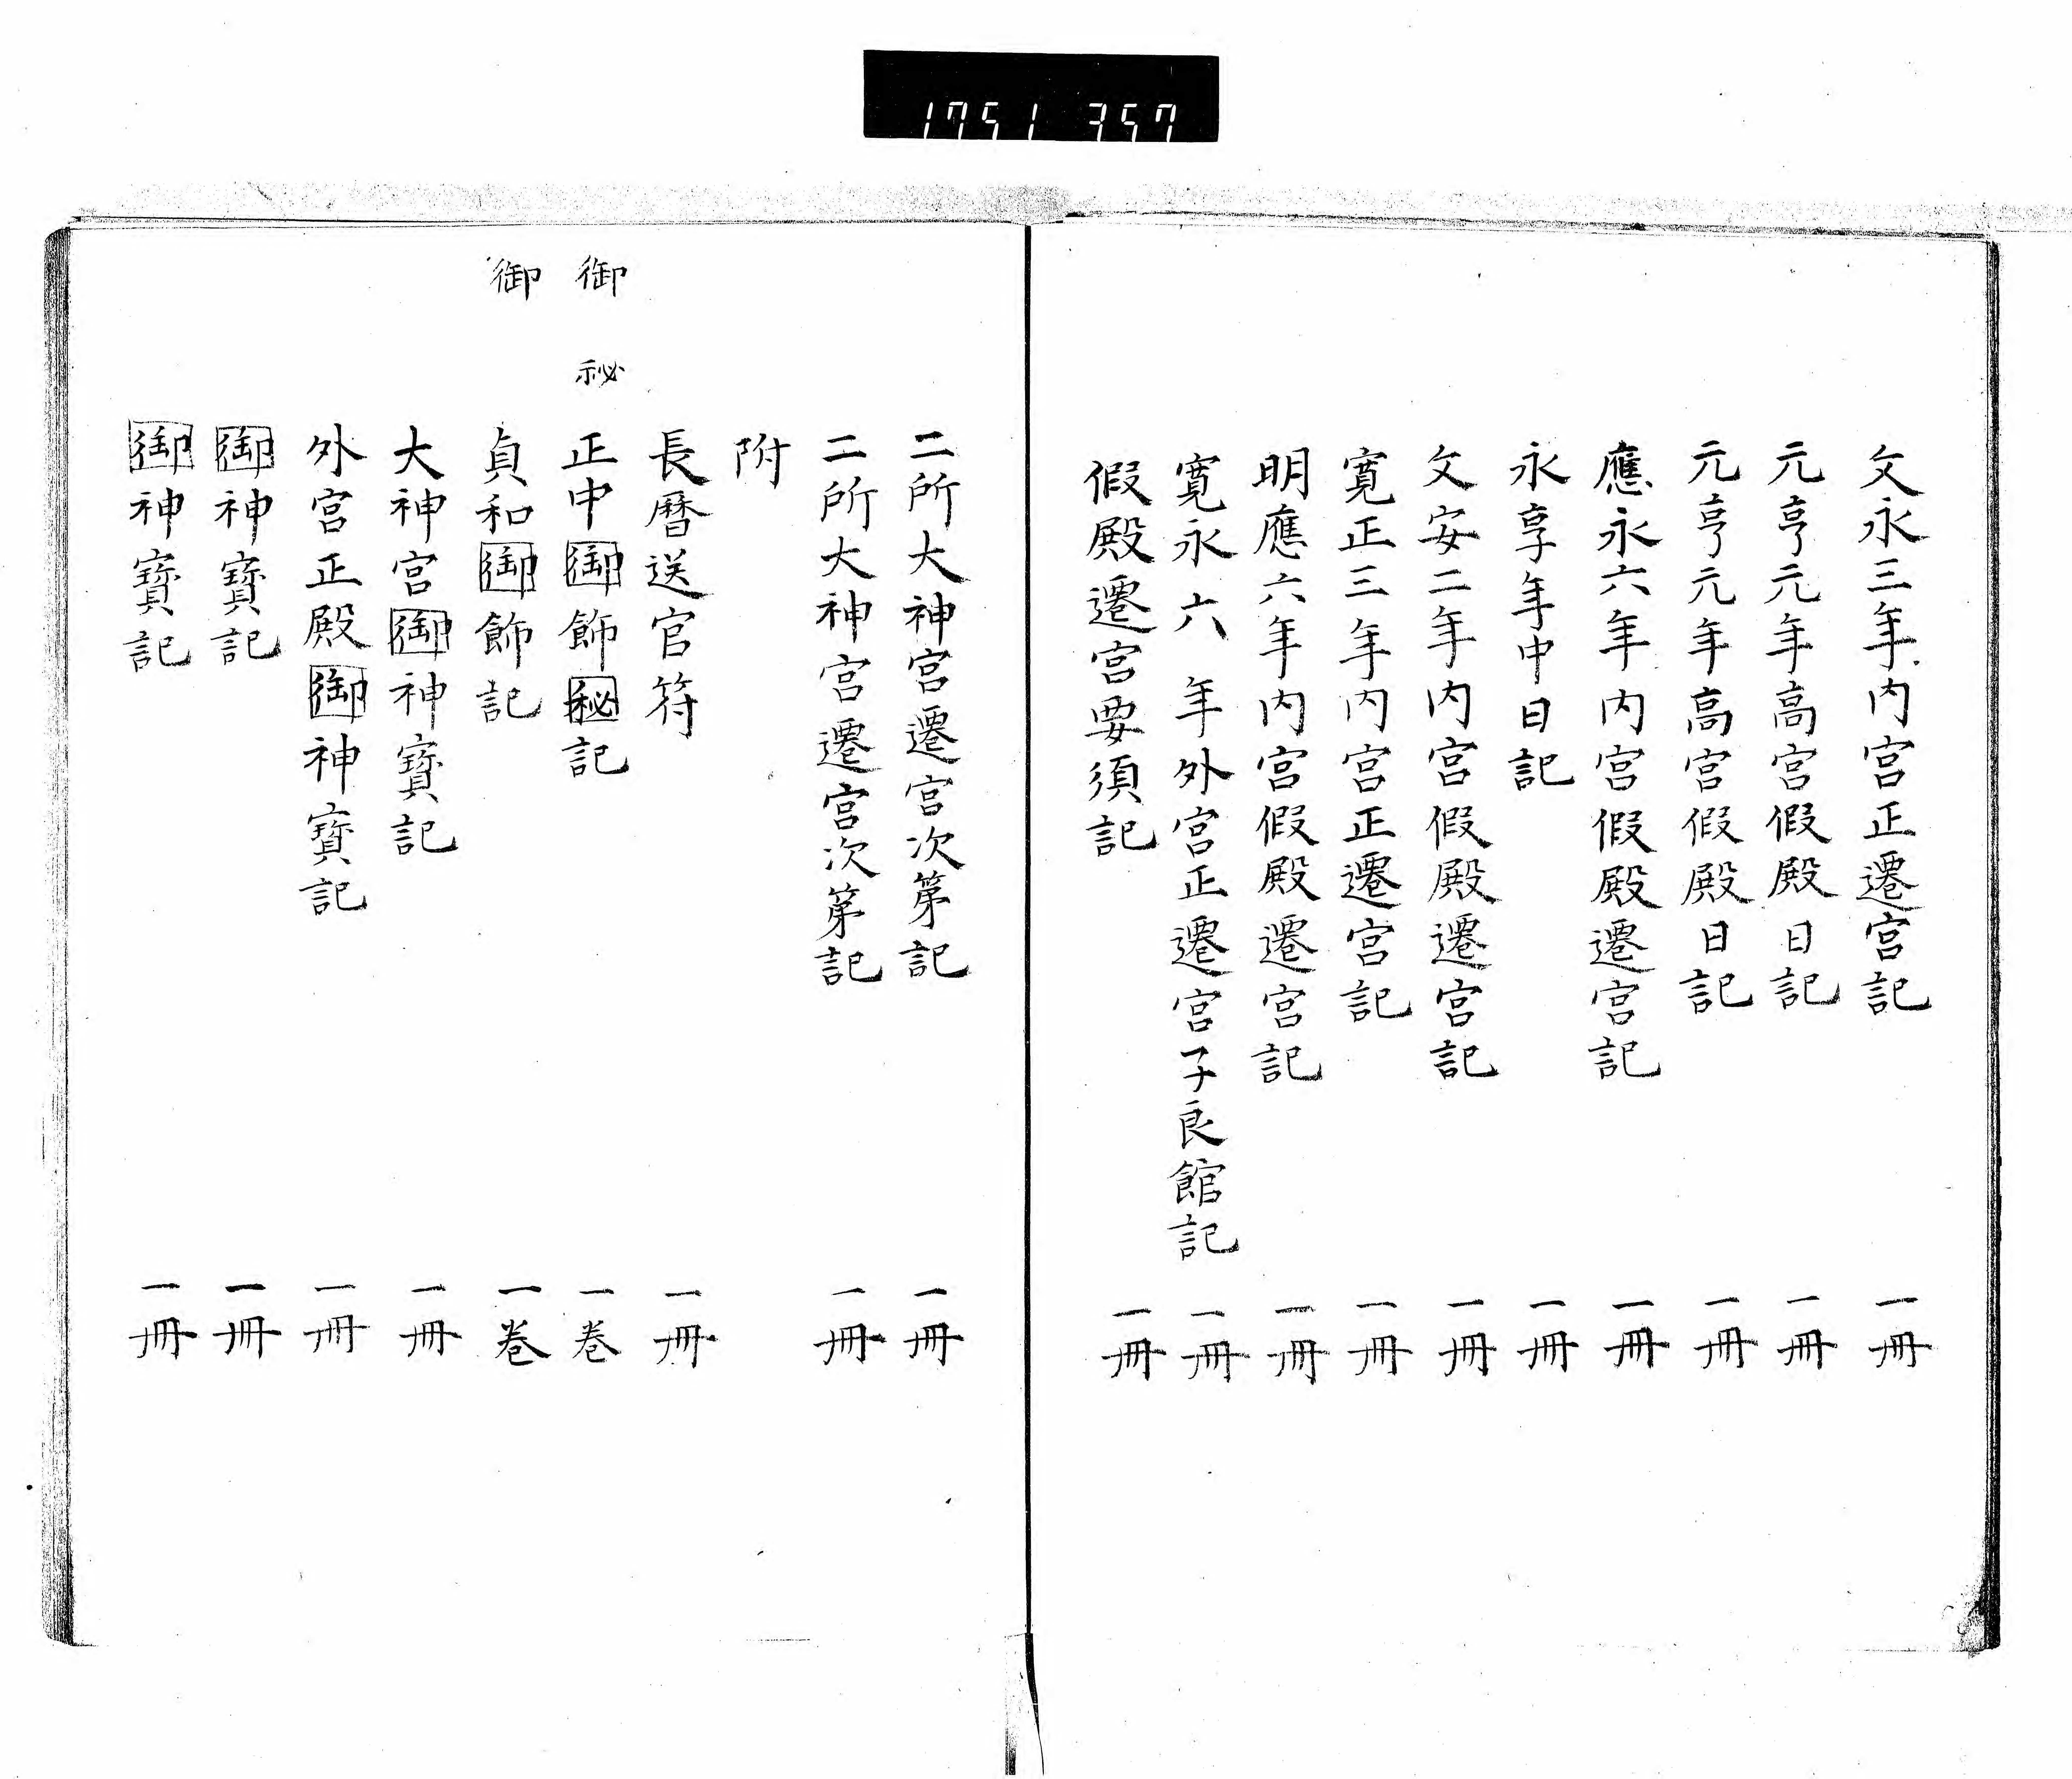 1751 357
文永三年内宮正遷宮記 一冊
元亨元年高宮假殿日記 一冊
元亨元年高宮假殿日記 一冊
應永六年内宮假殿遷宮記 一冊
永享年中日記 一冊
文安二年内宮假殿遷宮記 一冊
寛正三年内宮正遷宮記 一冊
明應六年内宮假殿遷宮記 一冊
寛永六年外宮正遷宮子良館記 一冊
假殿遷宮要須記 一冊
二所大神宮遷宮次第記 一冊
二所大神宮遷宮次第記 一冊
附
長暦送官符 一冊
御 秘
正中御飾秘記 一巻
御
貞和御飾記 一巻
大神宮御神寳記 一冊
外宮正殿御神寳記 一冊
御神寳記 一冊
御神寳記 一冊